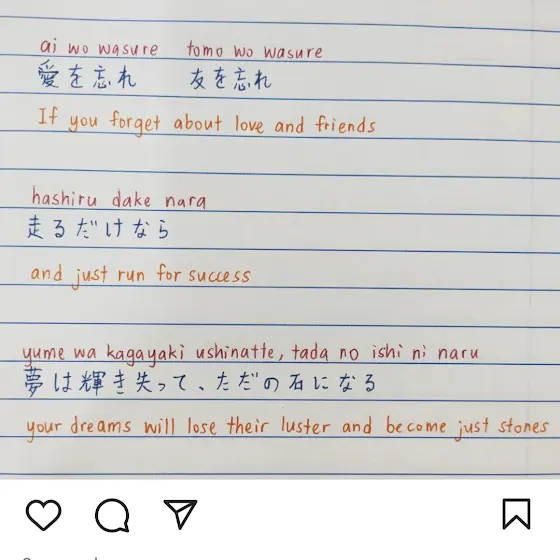 ai wo wasure tomo wo wasure
愛を忘れ 友を忘れ
If you forget about love and friends
hashiru dake nara
走るだけなら
and just run for success
yume wa kagayaki ushinatte, tada no ishi ni naru
夢は輝き失って、ただの石になる
your dreams will lose their luster and become just stones